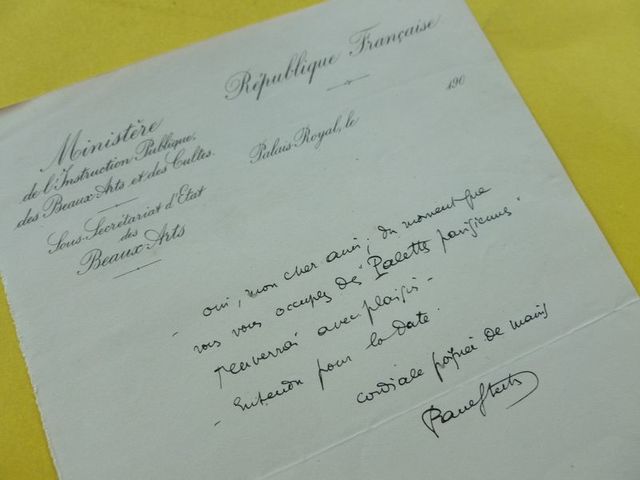 République Française
Ministère
de l'Instruction Publique,
des Beaux Arts et des Cultes.
Sous-Secrétariat d'Etat
des
Beaux Arts
Palais-Royal, le 190
- oui, mon cher ami, du moment que
vous vous occupez des "Palettes parisiennes"
avec plaisir -
- Entendu pour la date.
cordiale poignée de mains